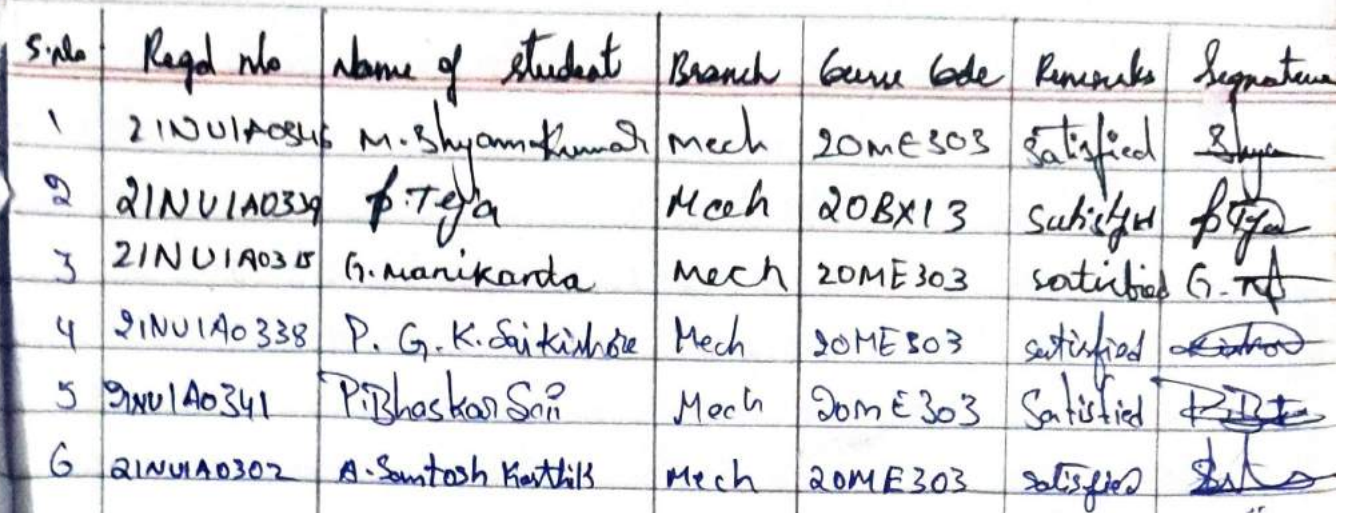 S.No Regd No Name of student Branch Course Code Remarks Signature
1 21NU1A0346 M. Shyam Kumar Mech 20ME303 Satisfied Shyam
2 21NU1A0339 P. Teja Mech 20BX13 P Teja
3 21NU1A0315 G. Manikanta Mech 20ME303 G.
4 21NU1A0338 P. G. K. Saikishore Mech 20ME303 satisfied
5 21NU1A0341 P. Bhaskar Sai Mech 20ME303 Satisfied
6 21NU1A0302 A. Santosh Karthik Mech 20ME303 satisfied